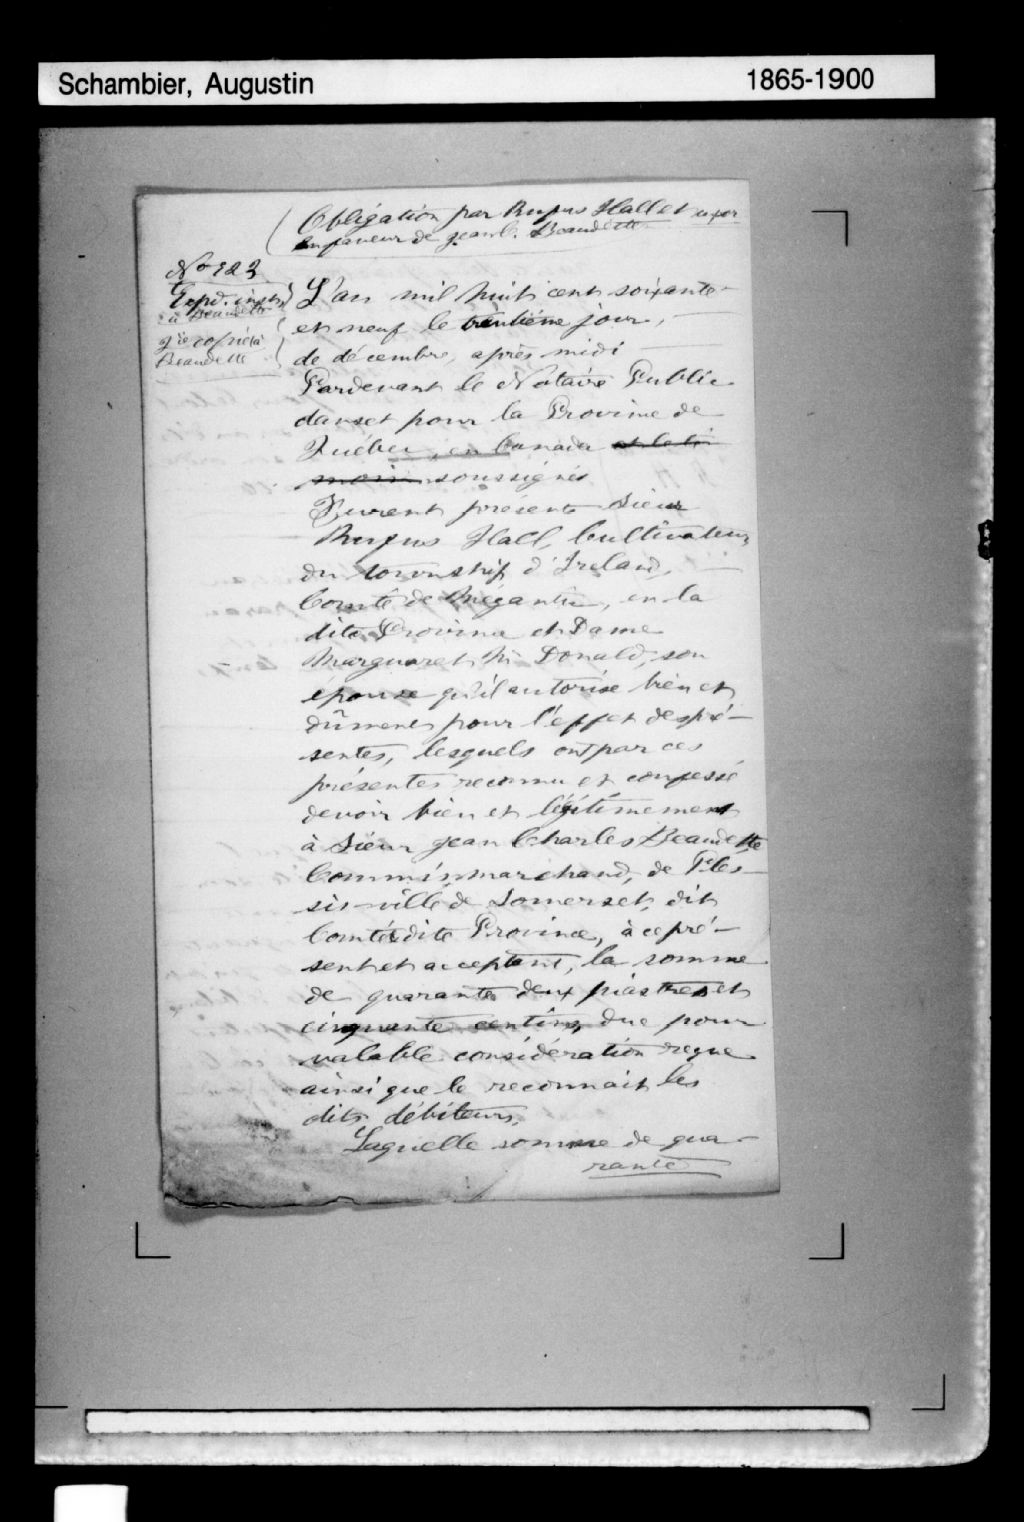 Schambier, Augustin 1865-1900
Obligation par Rufus Hall et uxor
en faveur de Jean C. Beaudette
No 923
Expd. inst.
à Beaudette
Beaudette
L'an mil huit cent soixante
et neuf le trentième jour,
de décembre, après midi
Pardevant le Notaire Public
dans et pour la Province de
Québec, en Canada et le té
moin soussignés
Furent présents Sieur
Rufus Hall, Cultivateur,
du township d'Ireland,
Comté de Mégantic, en la
dite Province et Dame
Margueret Mc Donald, son
épouse qu'il autorise bien et
dûment pour l'effet des pré-
sentes, lesquels ont par ces
présentes reconnu et confessé
devoir bien et légitimement
à Sieur Jean Charles Beaudette
Commis marchand, de Ples-
sisville de Somerset, dit
Comté & dite Province, à ce pré-
sent et acceptant, la somme
de quarante deux piastres et
cinquante centins, due pour
valable considération reçue
ainsi que le reconnait les
dits débiteurs,
Laquelle somme de qua-
rante